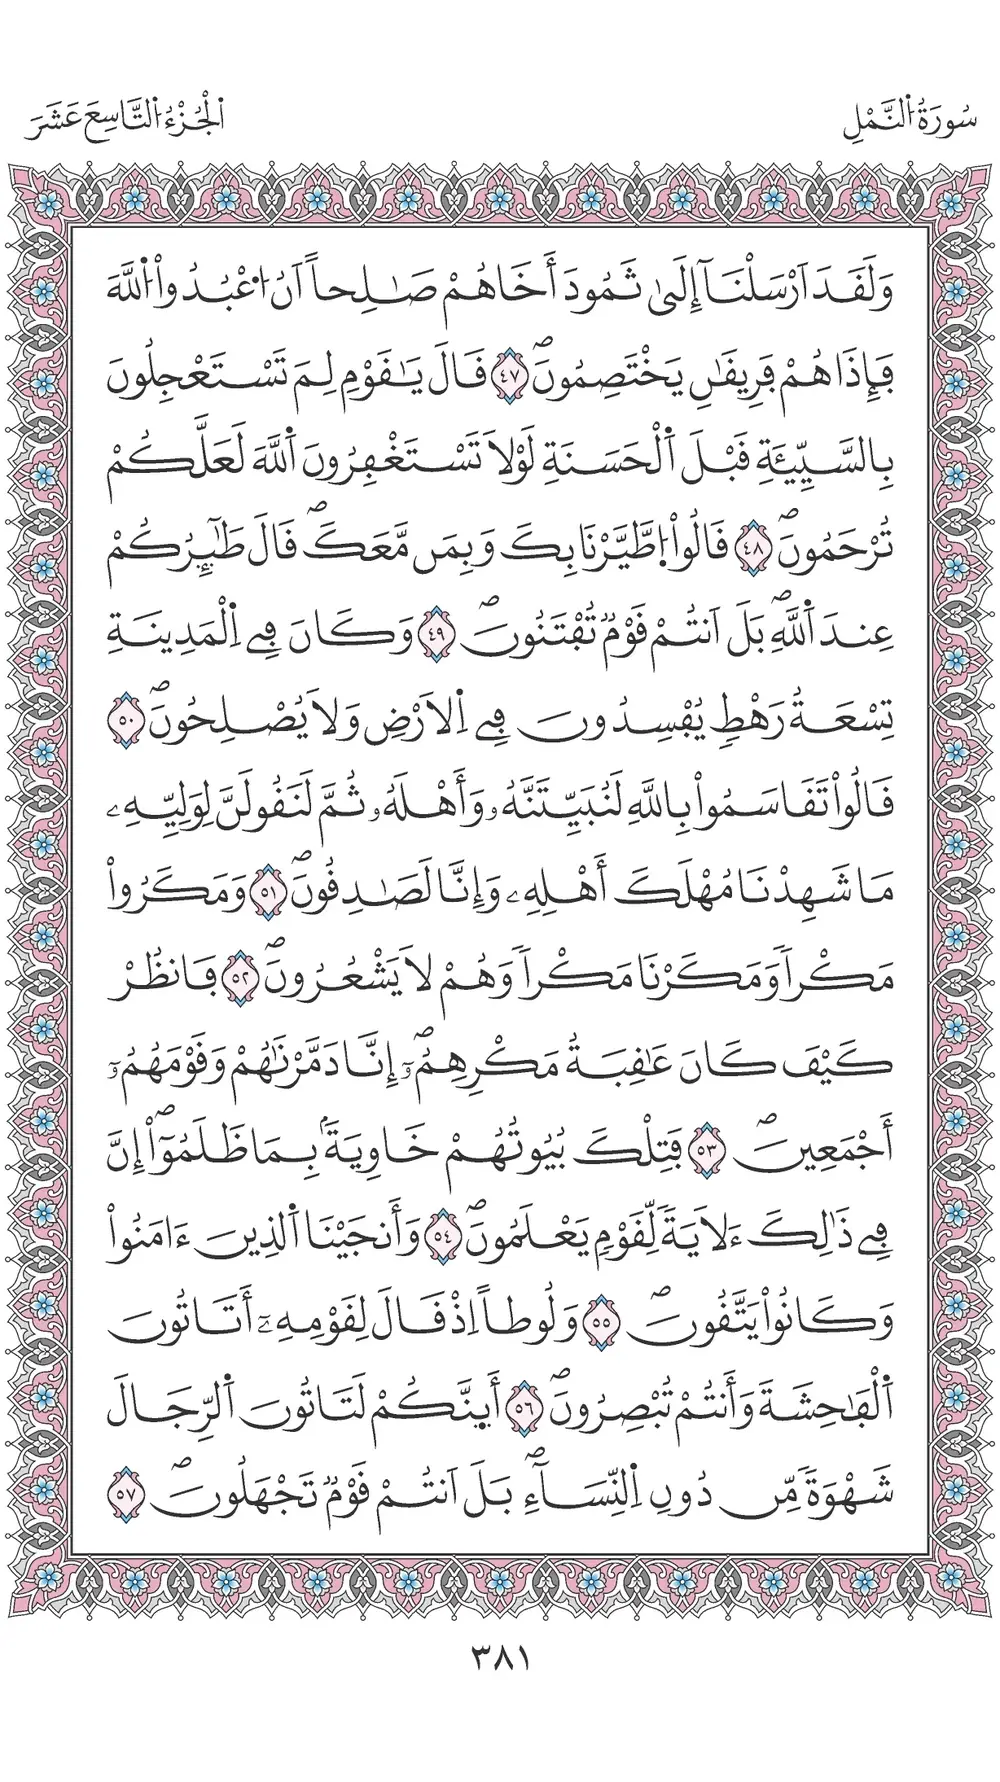 سُورَةُ النَّمْلِ
الْجُزْءُ التَّاسِعَ عَشَرَ
وَلَقَدَ اَرْسَلْنَآ إِلَىٰ ثَمُودَ أَخَاهُمْ صَٰلِحاً اَنُ اُ۟عْبُدُواْ اُللَّهَ
فَإِذَا هُمْ فَرِيقَٰنِ يَخْتَصِمُونَۖ ٤٧ قَالَ يَٰقَوْمِ لِمَ تَسْتَعْجِلُونَ
بِالسَّيِّئَةِ قَبْلَ اَ۬لْحَسَنَةِ لَوْلَا تَسْتَغْفِرُونَ اَ۬للَّهَ لَعَلَّكُمْ
تُرْحَمُونَۖ ٤٨ قَالُواْ اُ۪طَّيَّرْنَا بِكَ وَبِمَن مَّعَكَۖ قَالَ طَٰٓئِرُكُمْ
عِندَ اَ۬للَّهِۖ بَلَ اَنتُمْ قَوْمٞ تُفْتَنُونَۖ ٤٩ وَكَانَ فِے اِ۬لْمَدِينَةِ
تِسْعَةُ رَهْطٖ يُفْسِدُونَ فِے اِ۬لَارْضِ وَلَا يُصْلِحُونَۖ ٥٠
قَالُواْ تَقَاسَمُواْ بِاللَّهِ لَنُبَيِّتَنَّهُۥ وَأَهْلَهُۥ ثُمَّ لَنَقُولَنَّ لِوَلِيِّهِۦ
مَا شَهِدْنَا مُهْلَكَ أَهْلِهِۦ وَإِنَّا لَصَٰدِقُونَۖ ٥١ وَمَكَرُواْ
مَكْراٗ وَمَكَرْنَا مَكْراٗ وَهُمْ لَا يَشْعُرُونَۖ ٥٢ فَانظُرْ
كَيْفَ كَانَ عَٰقِبَةُ مَكْرِهِمُۥٓۖ إِنَّا دَمَّرْنَٰهُمْ وَقَوْمَهُمُۥٓ
أَجْمَعِينَۖ ٥٣ فَتِلْكَ بُيُوتُهُمْ خَاوِيَةَۢ بِمَا ظَلَمُوٓاْۖ إِنَّ
فِے ذَٰلِكَ ءَلَايَةٗ لِّقَوْمٖ يَعْلَمُونَۖ ٥٤ وَأَنجَيْنَا اَ۬لذِينَ ءَامَنُواْ
وَكَانُواْ يَتَّقُونَۖ ٥٥ وَلُوطاً اِذْ قَالَ لِقَوْمِهِۦٓ أَتَاتُونَ
اَ۬لْفَٰحِشَةَ وَأَنتُمْ تُبْصِرُونَۖ ٥٦ أَئِنَّكُمْ لَتَاتُونَ اَ۬لرِّجَالَ
شَهْوَةٗ مِّن دُونِ اِ۬لنِّسَآءِۖ بَلَ اَنتُمْ قَوْمٞ تَجْهَلُونَۖ ٥٧
٣٨١